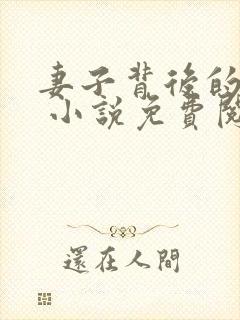 妻子背後的
小說免費閱
還在人間